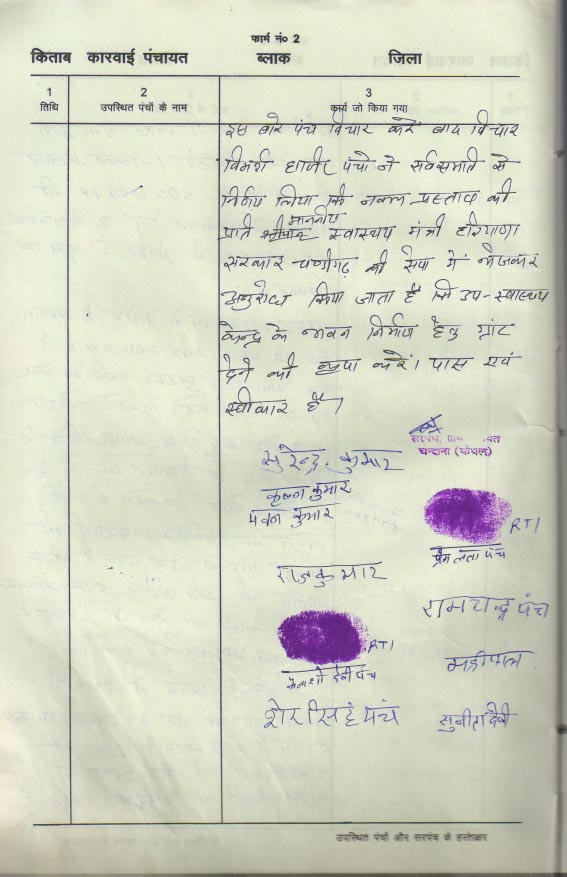 फार्म नं० 2
किताब कारवाई पंचायत ब्लाक जिला
1 2 3
तिथि उपस्थित पंचों के नाम कार्य जो किया गया
इस बारे पंच विचार करें बाद विचार
विमर्श हाजिर पंचों ने सर्वसमति से
निर्णय लिया कि नकल प्रस्ताव की
माननीय
प्रति स्वास्थय मंत्री हरियाणा
सरकार चण्डीगढ़ की सेवा में भेजकर
अनुरोध किया जाता है कि उप-स्वास्थय
केन्द्र के भवन निर्माण हेतु ग्रांट
देने की कृपा करें। पास एवं
स्वीकार है।
सरपंच, ग्राम
चन्दाना (कैथल)
सुरेन्द्र कुमार
कृष्ण कुमार
पवन कुमार
RTI
प्रेम लता पंच
राजकुमार
रामचन्द्र पंच
RTI
कैलाशो देवी पंच
महीपाल
शेर सिंह पंच
सुनीता देवी
उपस्थित पंचों और सरपंच के हस्ताक्षर